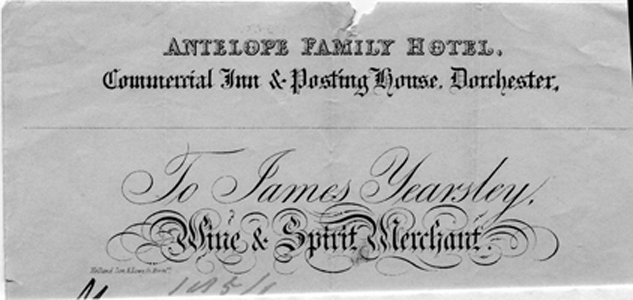 ANTELOPE FAMILY HOTEL.
Commercial Inn & Posting House, Dorchester,
To James Yearsley,
Wine & Spirit Merchant.